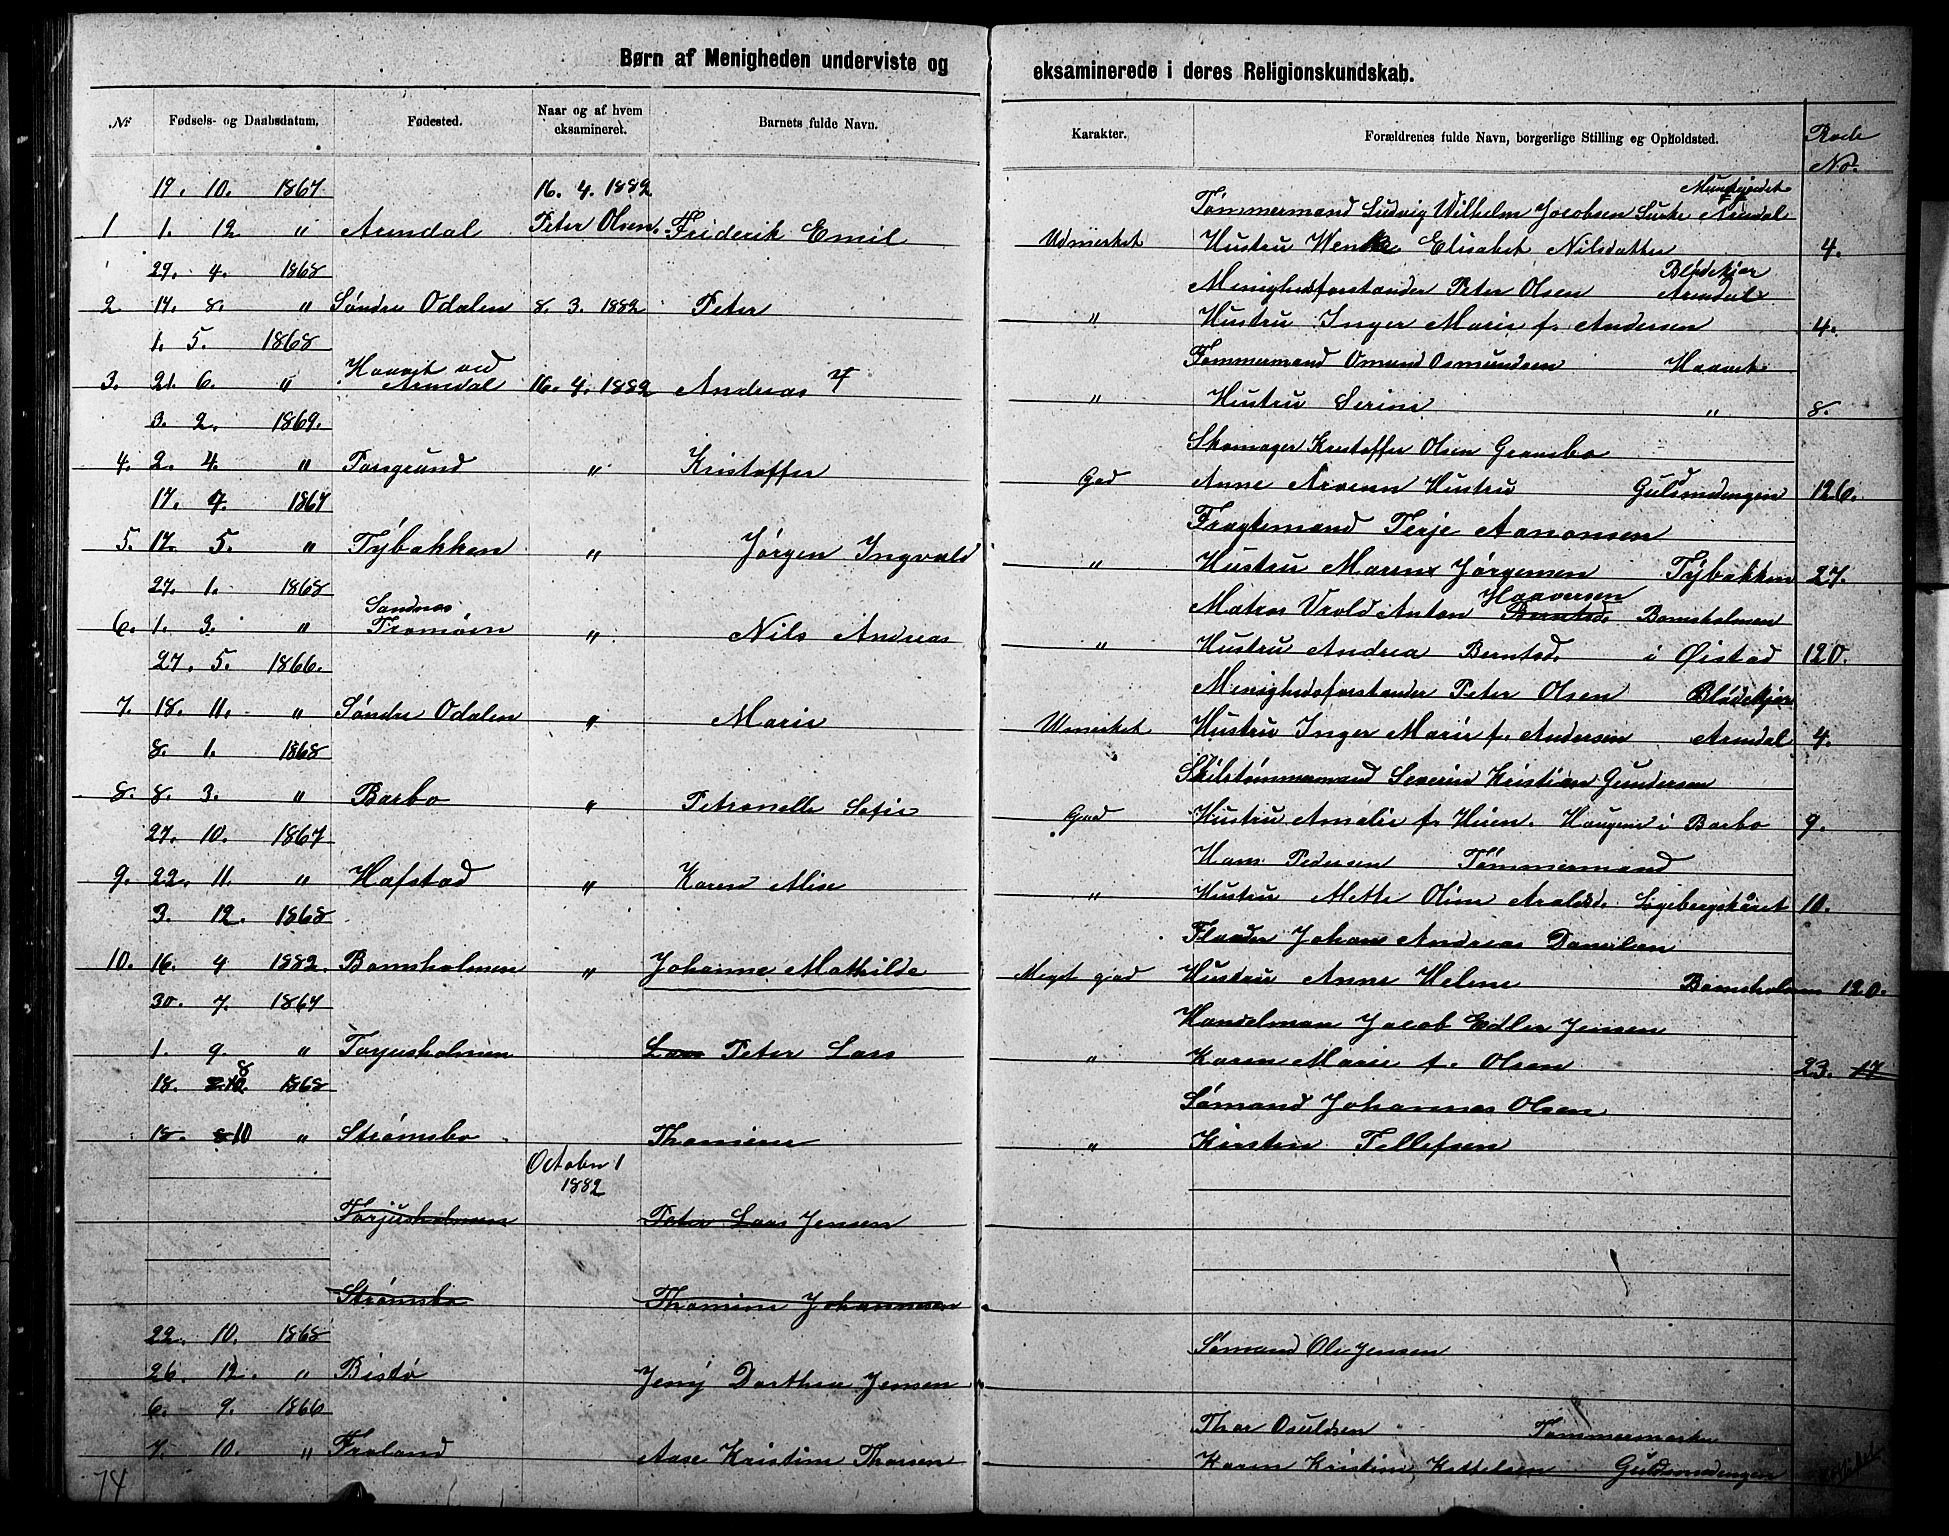 Børn af Menigheden underviste og eksaminerede i deres Religionskundskab.
Nr Fødsels- og Daabsdatum. Fødested. Naar og af hvem eksamineret. Barnets fulde Navn. Karakter. Forældrenes fulde Navn, borgerlige Stilling og Opholdsted. Rode No.
19. 10. 1867 16. 4. 1882 Tømmermand Ludvig Wilhelm Jacobsen Arendal
1 1. 12 " Arendal Peter Olsen. Friderik Emil Udmerket Hustru Elisabet Nilsdatter 4.
29. 4. 1868 Menighedsforstander Peter Olsen Blødekjær Arendal
2 17. 8. " Søndre Odalen 8. 3. 1882 Peter " Hustru Inger Marie f. Andersen 4.
1. 5. 1868 Tømmermand Omund Osmundsen Haavet
3. 21. 6. " Haavet ved Arendal 16. 4. 1882 Andreas " Hustru Serine " 8.
3. 2. 1869. Skomager Kristoffer Olsen Gransbo
4. 2. 4. " Porsgrund " Kristoffer God Anne Hustru Gulsmdengen 126.
17. 4. 1867 Fragtemand Terje Aanonsen
5. 17. 5. " Tybakken " Jørgen Ingvald " Hustru Maren Jørgensen Tybakken 27.
27. 1. 1868 Matros Vrold Anton Haaversen Berntsd. Bomsholmen
6. 1. 3. " Sandnes Tromøen " Nils Andreas " Hustru Andrea Berntsd. i Øistad 120.
27. 5. 1866. Menighedsforstander Peter Olsen Blødekjær
7. 18. 11. " Søndre Odalen " Marie Umerket Hustru Inger Marie f. Andersen Arendal 4.
8. 1. 1868 Skibstømmermand Severin Kristian Gundersen
8. 8. 3. " Barbo " Petronelle Sofie God Hustru Amalie f. Haugene i Barbo 9.
27. 10. 1867 Hans Pedersen Tømmermand
9. 22. 11. " Hafstad " Karen Alise " Hustru Mette Oline 10.
3. 12. 1868 Johan Andreas Danielsen
10. 16. 4 1882. Bomsholmen " Johanne Mathilde Meget god Hustru Anne Helene Bomsholmen 120.
30. 7. 1867 Handelman Jacob Edler Jensen
1. 9. " Torjusholmen Lars Peter Lars " Karen Marie f. Olsen 23. 17
18. 8 1868 Sømand Johannes Olsen
18. 10 " Strømsbo Thomine " Kirsten Tellefsen
October 1 1882
Torjusholmen Peter Lars Jensen
Strømsbo Thomine Johannesen
22. 10. 1868 Sømand Ole Jensen
26. 12. " Bisdø Jeny Dorthea Jensen
6. 9. 1866 Thor Osuldsen
7. 10. " Froland Aase Kristine Thorsen Karen Kristine Kettelsen Guldsmedengen
74